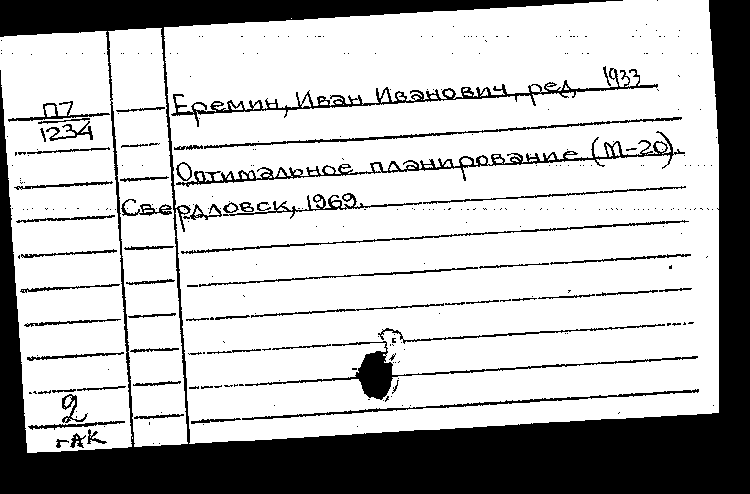 П7
1234
Еремин, Иван Иванович, ред. 1933
Оптимальное планирование (М-20).
Свердловск, 1969.
2
гАК